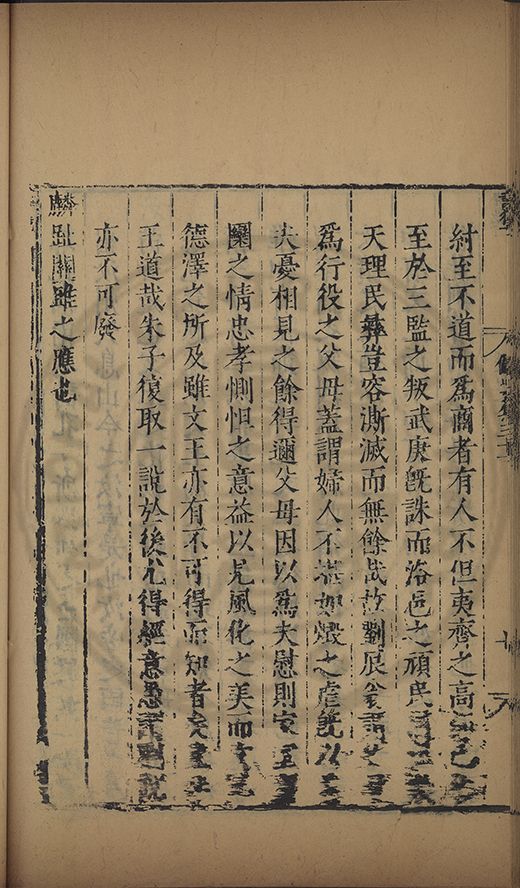 紂至不道而爲商者有人不但夷齊之高
至於三監之叛武庚旣誅而洛邑之頑民
天理民彝豈容澌滅而無餘哉故劉辰翁謂
爲行役之父母蓋謂婦人不堪如燬之虐旣以
夫憂相見之餘得邇父母因以爲夫慰則室
閫之情忠孝惻怛之意益以見風化之美而文王
德澤之所及雖文王亦有不可得而知者矣
王道哉朱子復取一說於後尤得經意愚謂劉說
亦不可廢
麟趾關雎之應也